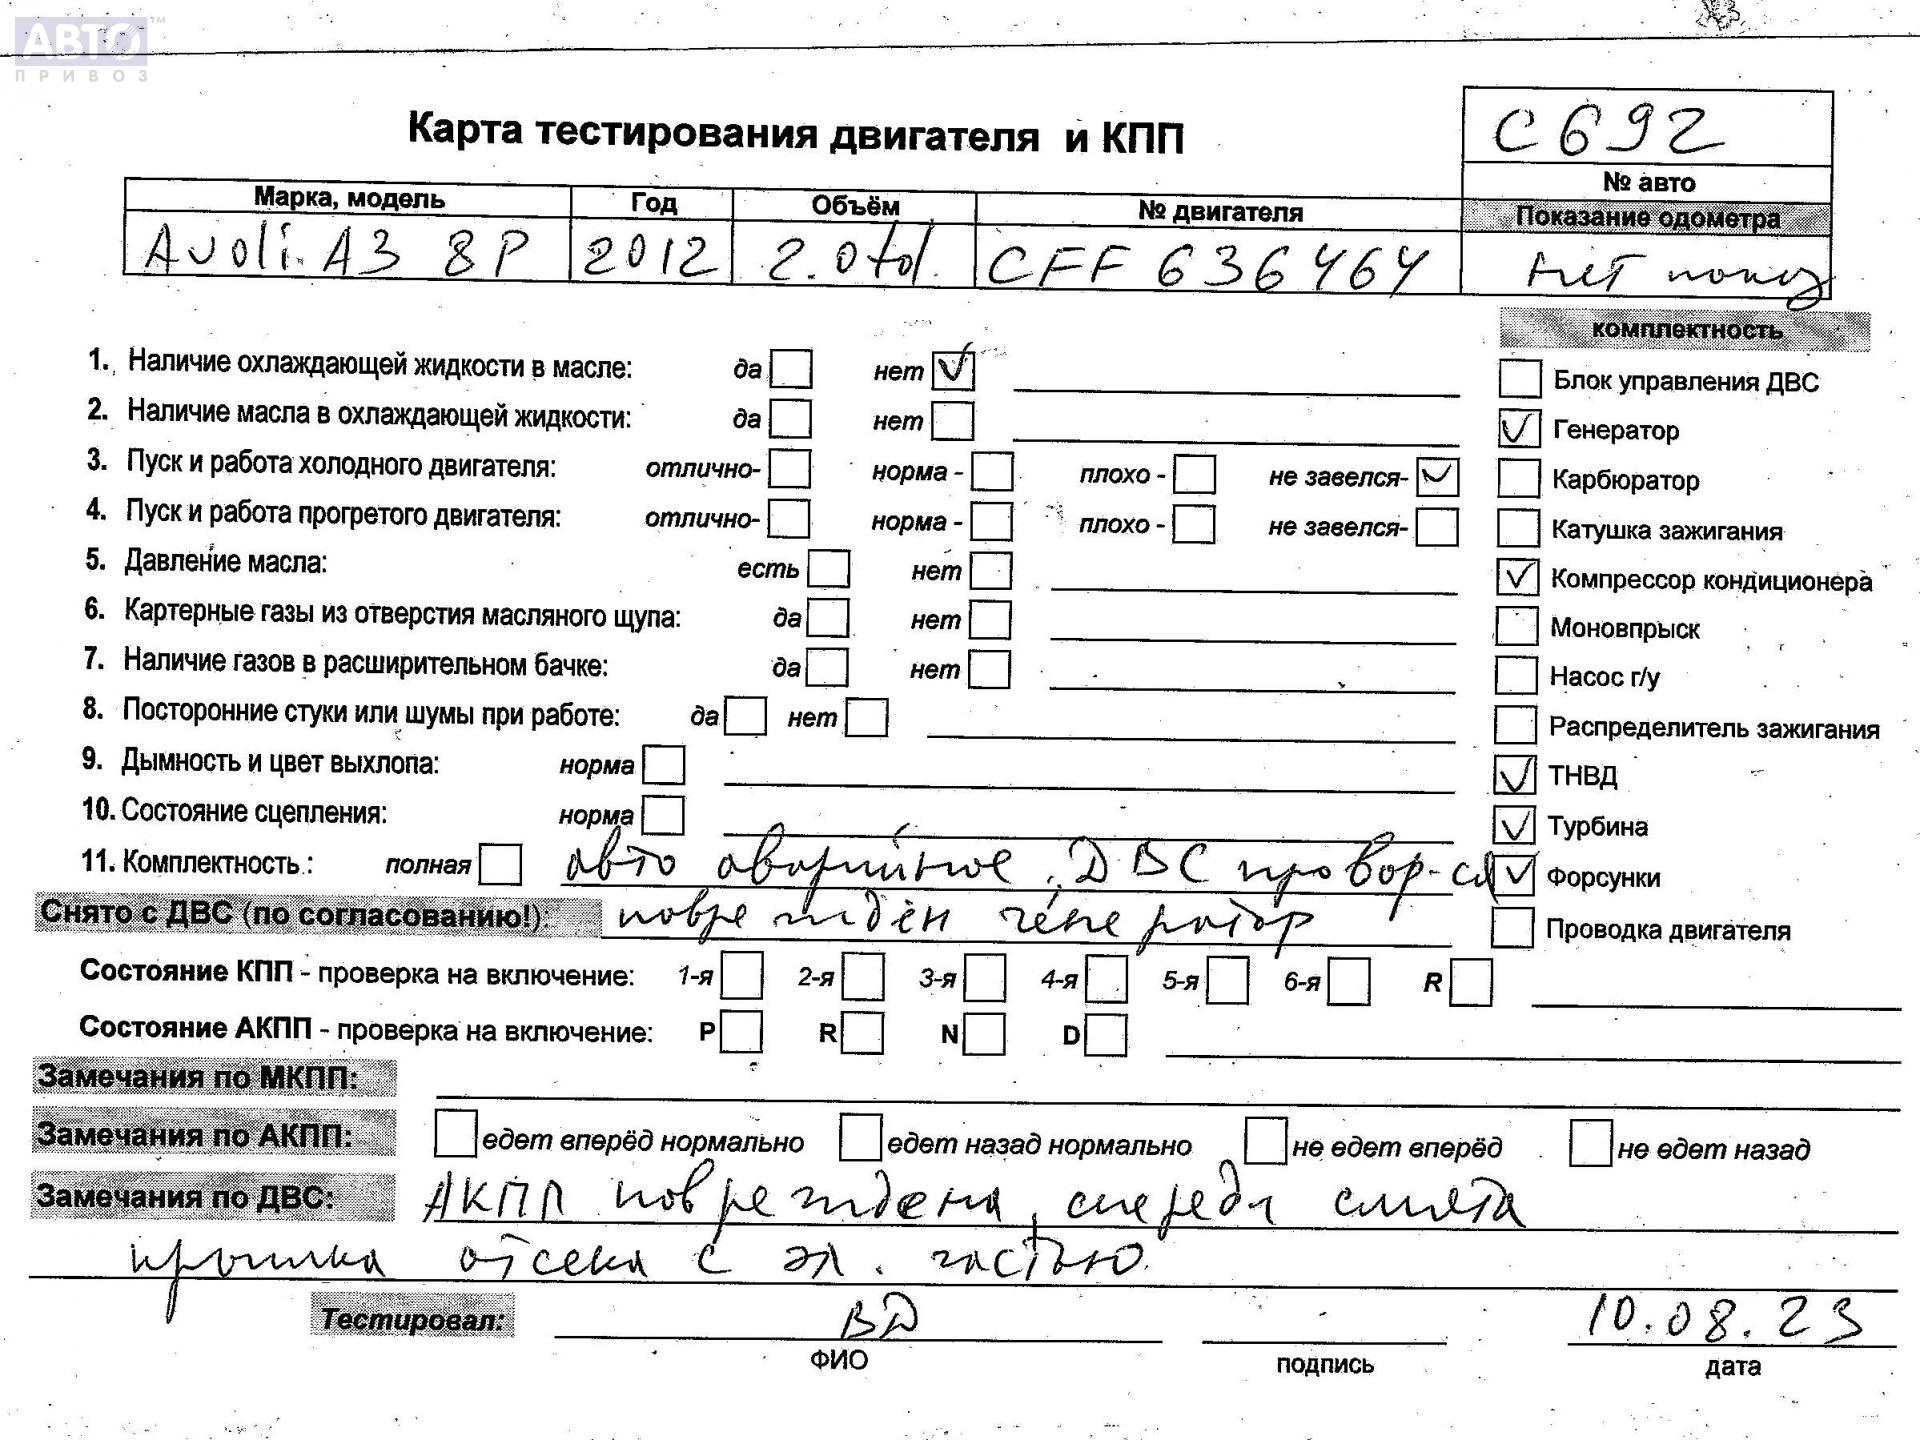 АВТО™
ПРИВОЗ
Карта тестирования двигателя и КПП
C692
№ авто
Марка, модель Год Объём № двигателя Показание одометра
Audi A3 8P 2012 2.0td. CFF 636464 нет показ
комплектность
1. Наличие охлаждающей жидкости в масле: да нет ✓
Блок управления ДВС
2. Наличие масла в охлаждающей жидкости: да нет
✓ Генератор
3. Пуск и работа холодного двигателя: отлично- норма - плохо - не завелся- ✓
Карбюратор
4. Пуск и работа прогретого двигателя: отлично- норма - плохо - не завелся-
Катушка зажигания
5. Давление масла: есть нет
✓ Компрессор кондиционера
6. Картерные газы из отверстия масляного щупа: да нет
Моновпрыск
7. Наличие газов в расширительном бачке: да нет
Насос г/у
8. Посторонние стуки или шумы при работе: да нет
Распределитель зажигания
9. Дымность и цвет выхлопа: норма
✓ ТНВД
10. Состояние сцепления: норма
✓ Турбина
11. Комплектность : полная авто аварийное, ДВС провор-ся
✓ Форсунки
Снято с ДВС (по согласованию!): повреждён генератор
Проводка двигателя
Состояние КПП - проверка на включение: 1-я 2-я 3-я 4-я 5-я 6-я R
Состояние АКПП - проверка на включение: P R N D
Замечания по МКПП:
Замечания по АКПП: едет вперёд нормально едет назад нормально не едет вперёд не едет назад
Замечания по ДВС: АКПП повреждена, спереди смята
крышка отсека с эл. частью
Тестировал: ВД 10.08.23
ФИО подпись дата